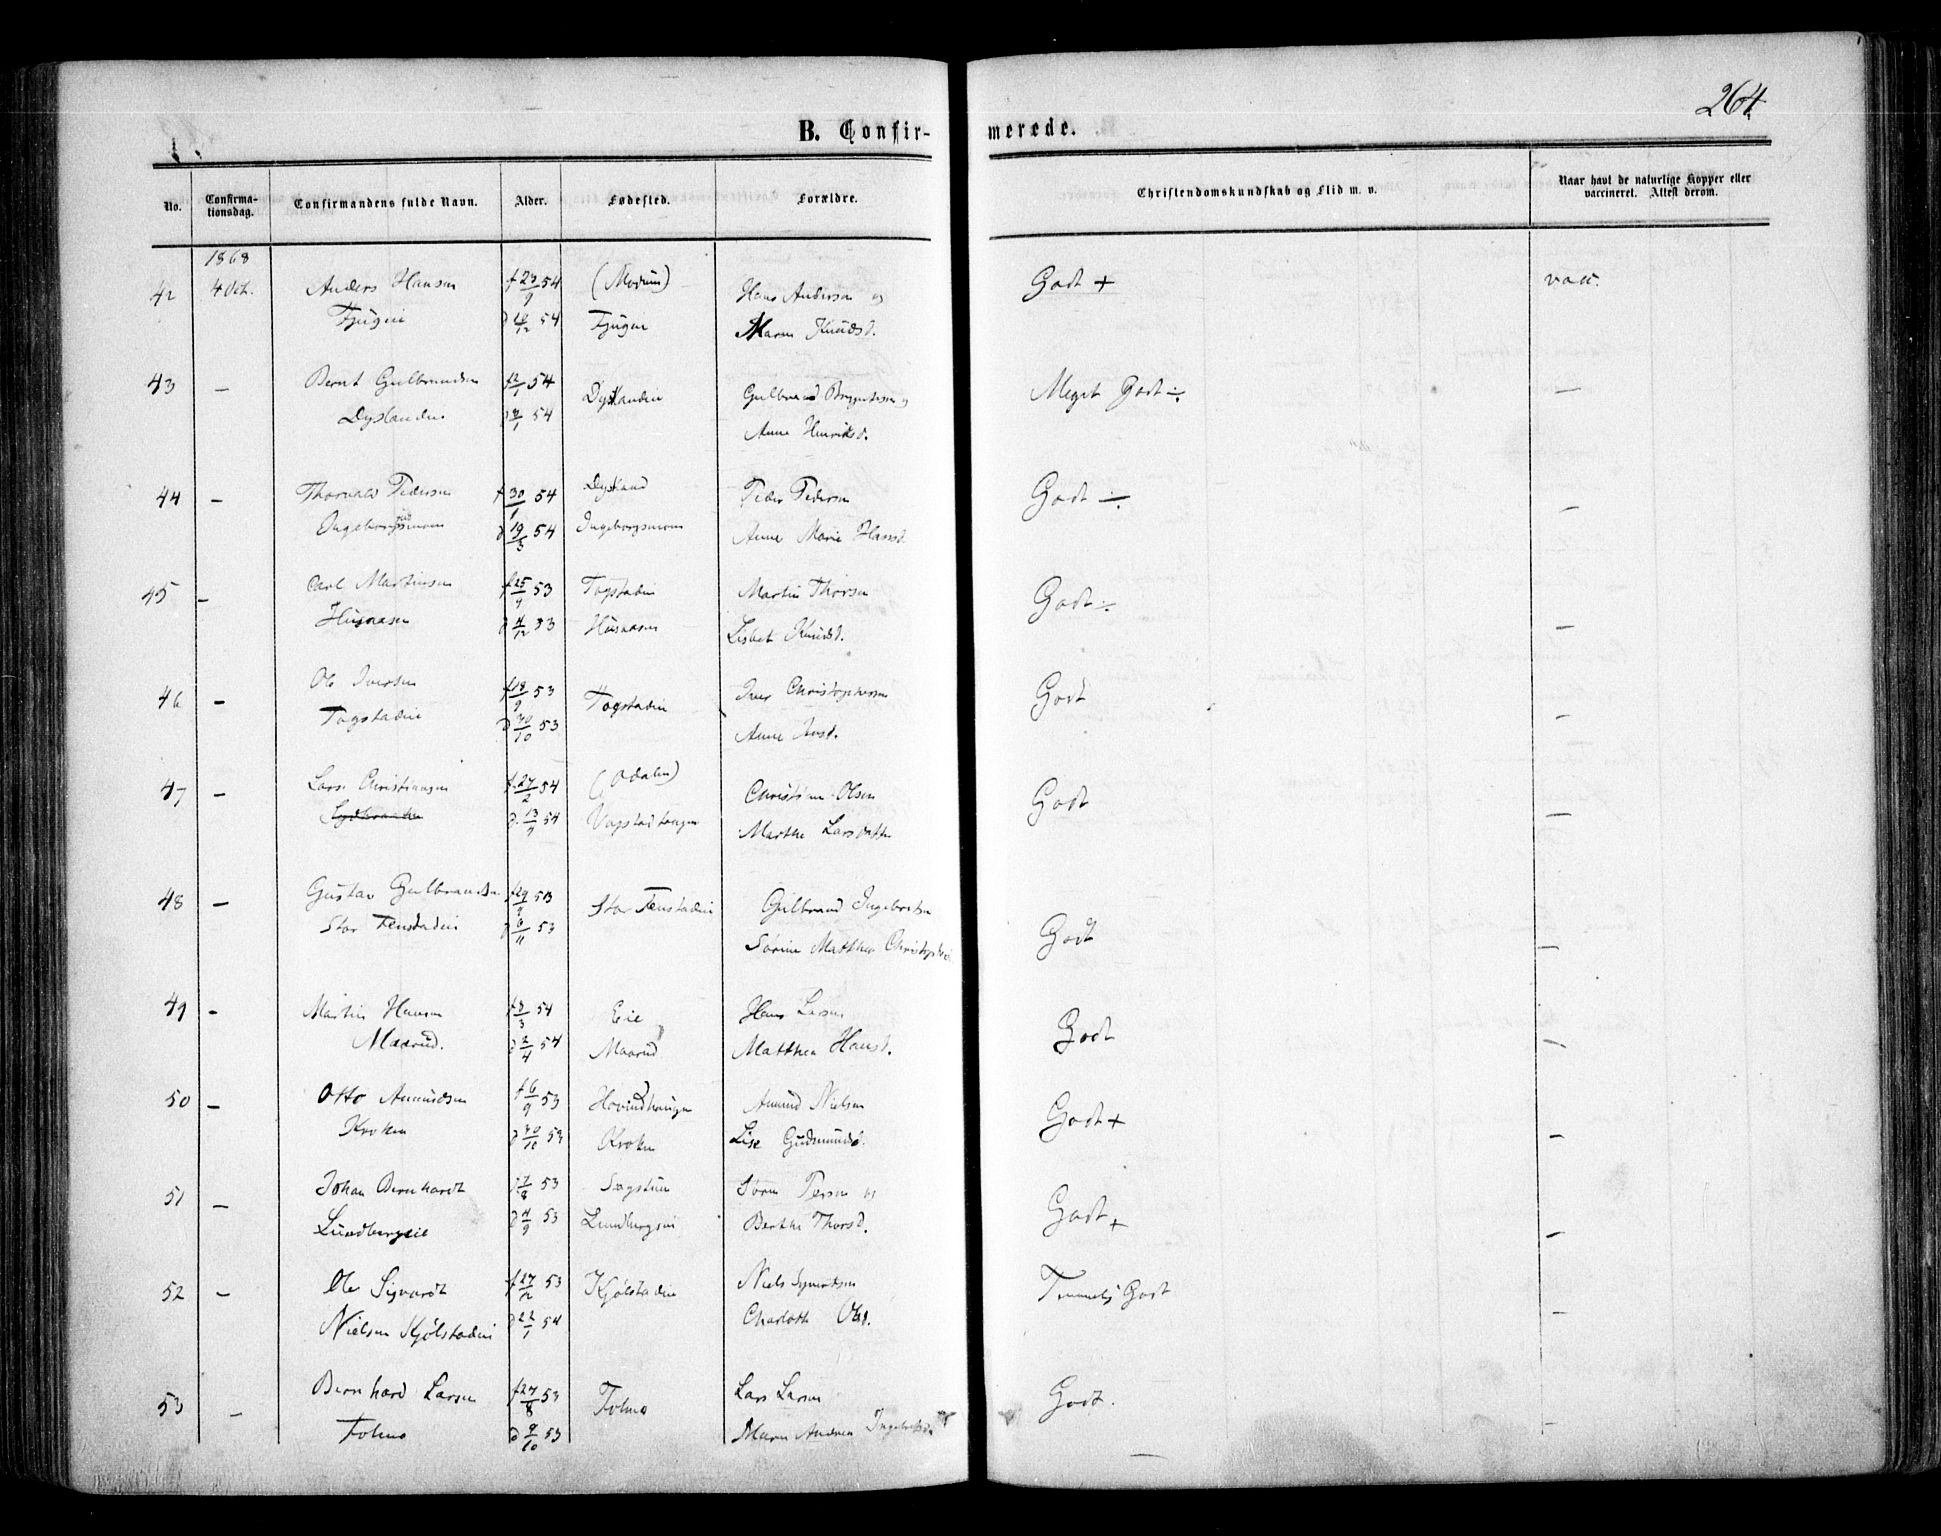 264
B. Confir-
merede.
No.
Confirma-
tionsdag.
Confirmandens fulde Navn.
Alder.
Fødested.
Forældre.
Christendomskundskab og Flid m. v.
Naar havt de naturlige Kopper eller
vaccineret. Attest derom.
1868
42 4 Oct. Anders Hansen f 23/9 54 (Modum) Hans Andersen og Godt + vacc.
d 54 Maren Knudsd.
43 — Bernt Gulbrandsen 54 Gulbrand Meget Godt ÷ —
54 Anne Henriksd.
44 — Thorvald Pedersen f 30/1 54 Peder Pedersen Godt ÷ —
d 19/3 54 Ingeborgsmoen Anne Marie Hansd.
45 — Carl Martinsen f 25/9 53 Togstadeie Martin Thorsen Godt ÷
Husaasen d 4/12 53 Husaasen Lisbet Knudsd. —
46 — Ole Iversen f 18/9 53 Togstadeie Iver Christophersen Godt
Togstadeie d 30/10 53 Anne —
47 — Lars Christiansen f. 27/2 54 (Odalen) Christian Olsen Godt
d. 13 54 Marthe Larsdatter —
48 — Gustav Gulbrandsen f 29/9 53 Stor Fenstadeie Gulbrand Ingebretsen Godt
Stor Fenstadeie d 6/11 53 Sørine Matthea —
49 — Martin Hansen f 3/3 54 Eie Hans Larsen Godt
Maarud. d 2/4 54 Maarud Matthea Hansd. —
50 — Otto Amundsen f 6/9 53 Hovindhaugen Amund Nielsen Godt +
Kroken d 30/10 53 Kroken Lise Gudmundsd. —
51 — Johan Bernhardt f. 7/8 53 Sagstuen Søren og Godt +
Lundbergeie d 4/9 53 Lundbergeie Berthe Thorsd. —
52 — Ole Sigvardt f 27/12 53 Kjølstadeie Niels Temmelig Godt
Nielsen Kjølstadeie d 22/1 54 Charlotte Olsd. —
53 — Bernhard Larsen f 27/8 53 Folmo Lars Larsen Godt.
Folmo d 9/10 53 Maren Andrea Ingebretsd. —